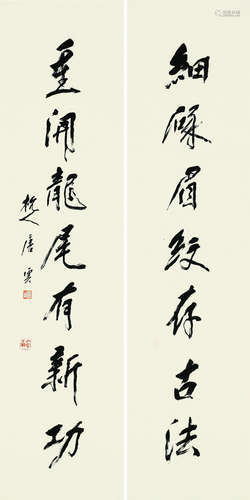 細臨眉紋存古法
重開龍尾有新功
杭人唐雲